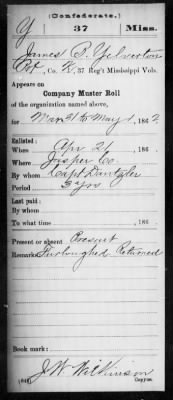 (Confederate.)
Y 37 Miss.
James B. Yelverton
Pvt, Co. K, 37 Reg't Mississippi Vols.
Appears on
Company Muster Roll
of the organization named above,
for Mar 31 to May 1, 1862
Enlisted:
When Apr 26, 186
Where Jasper Co.
By whom Capt Dantzler
Period 3 yrs
Last paid:
By whom
To what time , 186
Present or absent Present
Remarks: Furloughed Returned
Book mark:
J W Wilkinson
(642) Copyist.